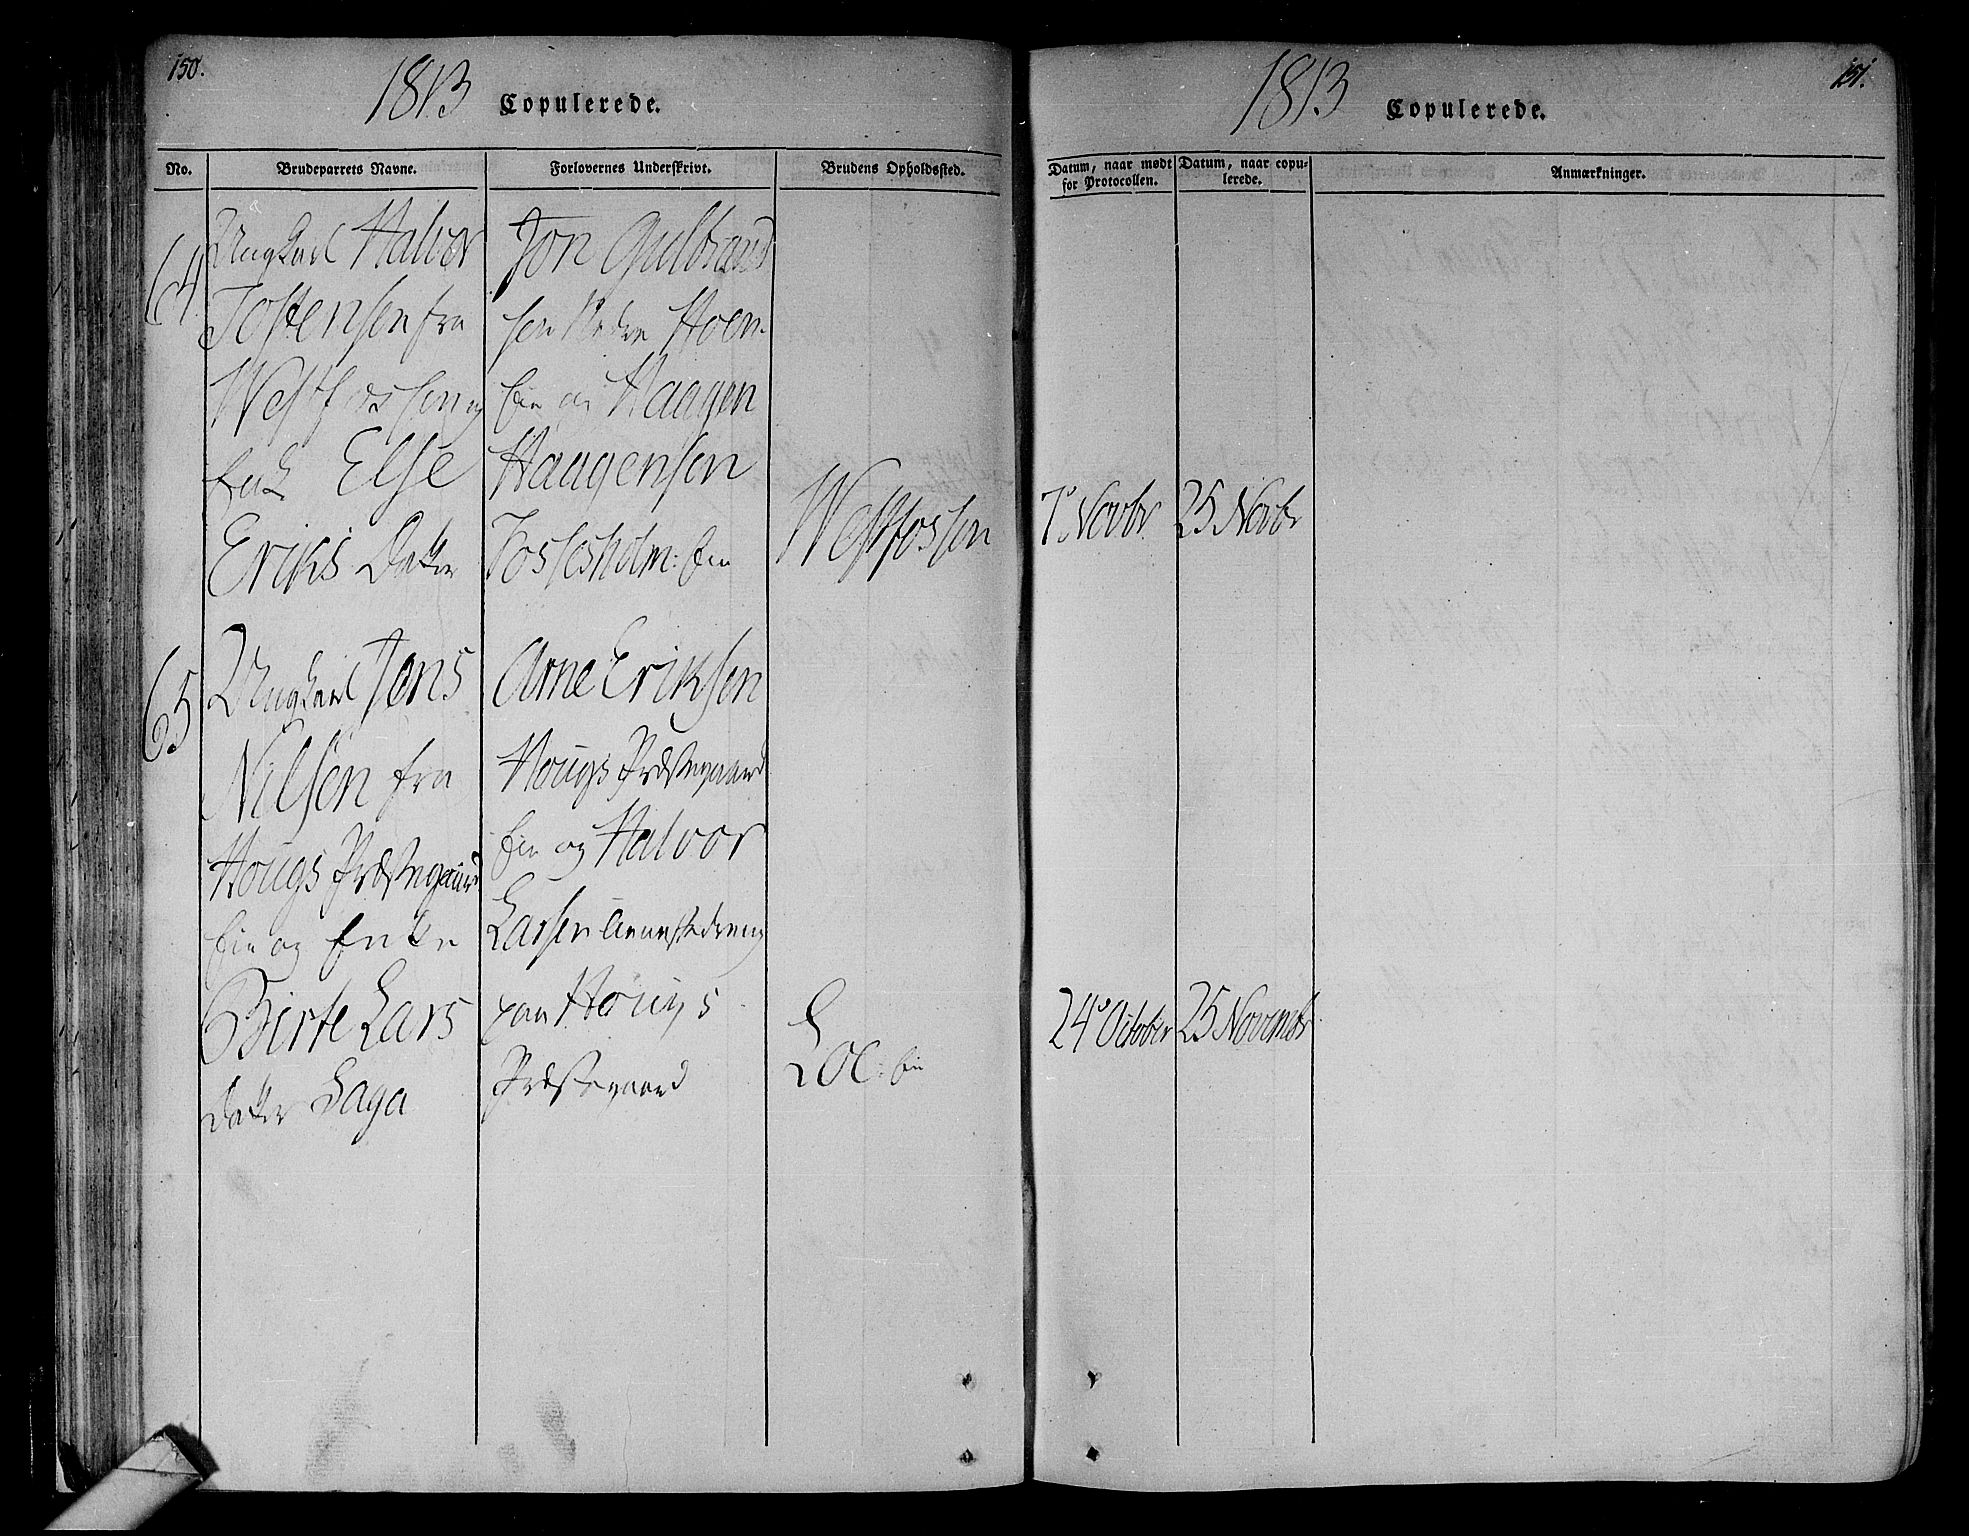 150.
1813 Copulerede.
No.
Brudeparrets Navne.
Forlovernes Underskrivt.
Brudens Opholdssted.
64
Ungkarl Halvor
Tostensen fra
Westfossen og
Enk Else
Eriks Datter
Jon Gulbrand
sen Nedre Hoen
Eie og Haagen
Haagensen
Fossesholm: Eie
Westfossen
65
Ungkarl Jens
Nilsen fra
Hougs Præstegaard
Eie og Enke
Birte Lars
Datter Haga
Arne Eriksen
Hougs Præstegaard
Eie og Halvor
Larsen
paa Hougs
Præstegaard
Loe: Eie
1813 Copulerede.
151.
Datum, naar mødt
for Protocollen.
Datum, naar copu-
lerede.
Anmærkninger.
7 Novbr
25 Novbr
24 October
25 Novembr